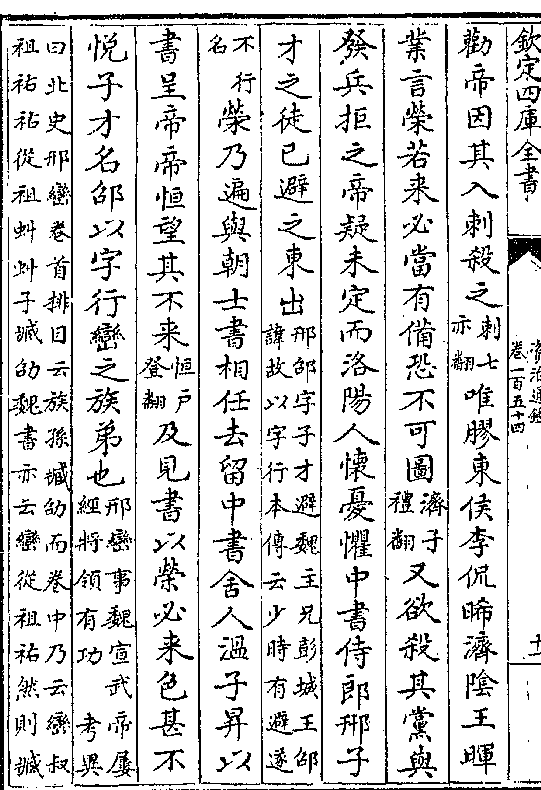 欽定四庫全書
資治通鑑
卷一百五十四
十一
勸帝因其入刺殺之刺七亦翻唯膠東侯李侃晞濟陰王暉
業言榮若來必當有備恐不可圖濟子禮翻又欲殺其黨與
發兵拒之帝疑未定而洛陽人懷憂懼中書侍郎邢子
才之徒已避之東出邢邵字子才避魏主兄彭城王邵諱故以字行本傳云少時有避遂
不行名榮乃遍與朝士書相任去留中書舍人溫子昇以
書呈帝帝恒望其不來恒户登翻及見書以榮必來色甚不
悅子才名邵以字行巒之族弟也邢巒事魏宣武帝屢經將領有功 考異
曰北史邢巒卷首排目云族孫臧劭而卷中乃云巒叔
祖祐祐從祖虯虯子臧劭魏書亦云巒從祖祐然則臧